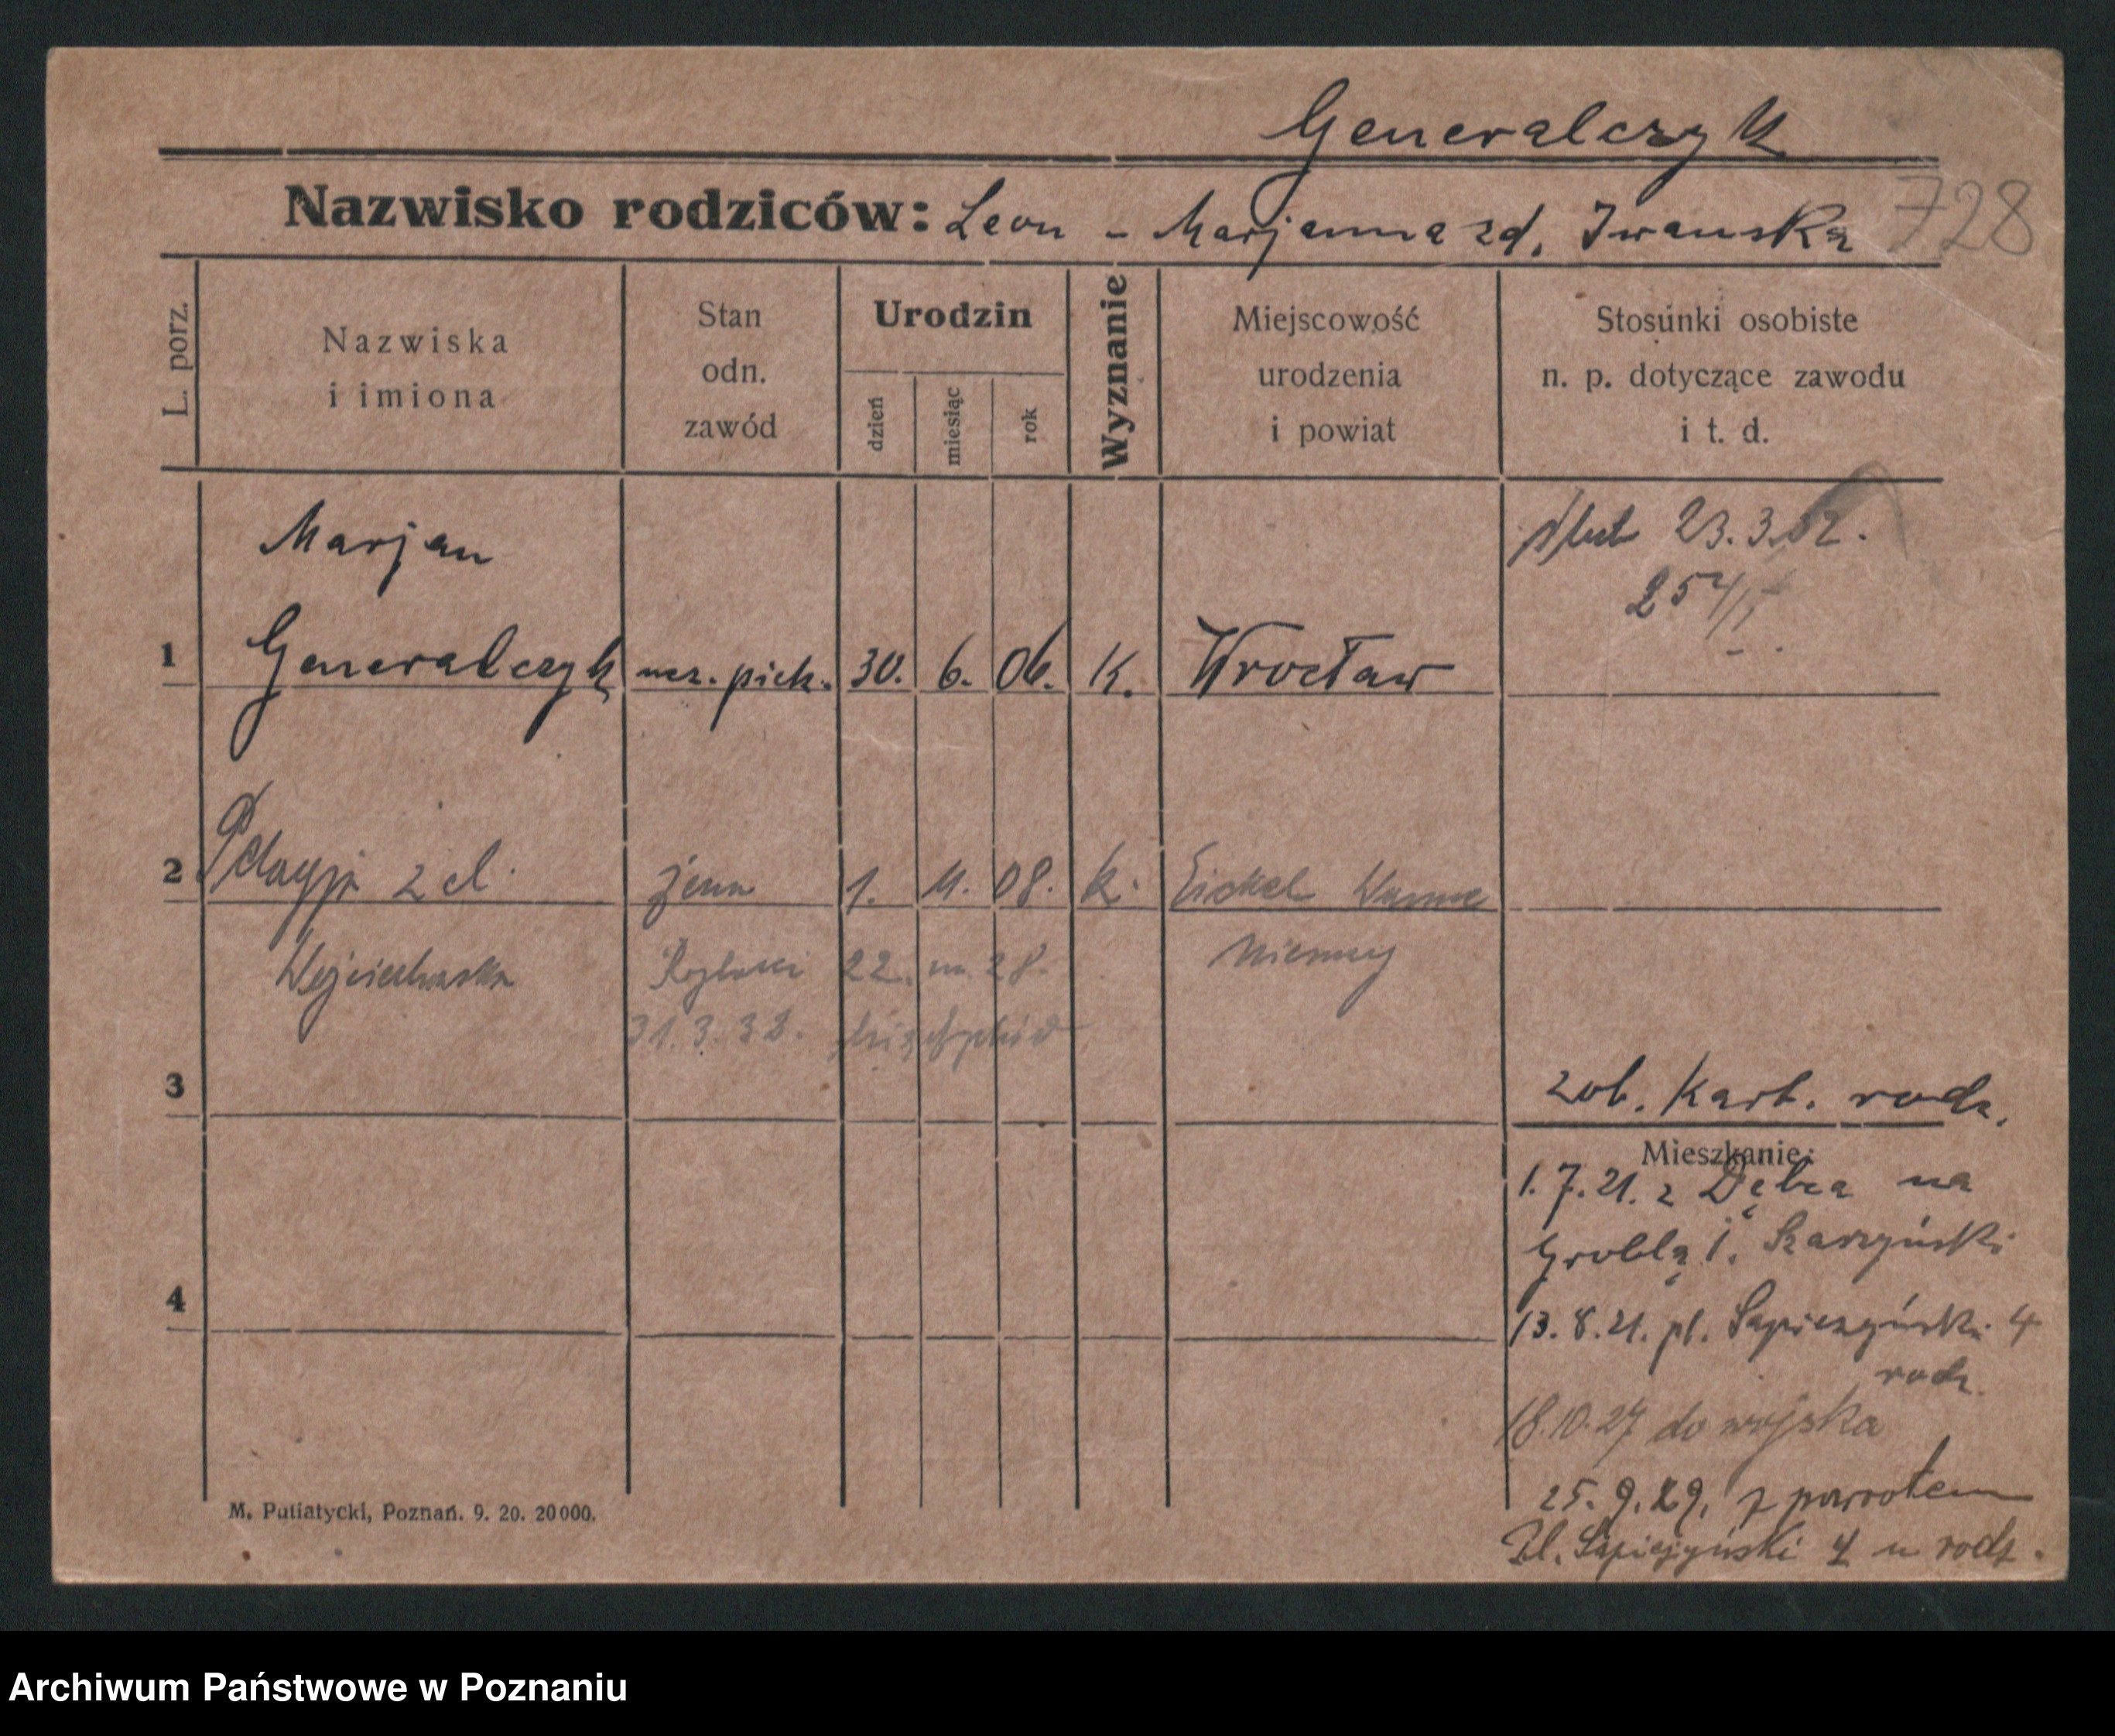 Generalczyk
Nazwisko rodziców: Leon - Marjanna zd. Iwanska 728
L. porz.
Nazwiska i imiona
Stan odn. zawód
Urodzin
dzień miesiąc rok
Wyznanie
Miejscowość urodzenia i powiat
Stosunki osobiste n. p. dotyczące zawodu i t. d.
Marjan
ślub 23.3.32.
254/
1 Generalczyk ucz. piek. 30. 6. 06. K. Wrocław
2 Pelagja zd. żona 1. 11. 08. k. Eickel Wanne
Wojciechowska 22. 28. Niemcy
31.3.32.
3
zob. Kart. rodz.
Mieszkanie:
1.7.21. z Dębca na
Groblą 1. Szarzyński
4
13.8.21. pl. Sapieżyński 4
rodz.
18.10.27 do wojska
25.9.29. z powrotem
Pl. Sapieżyński 4 u rodz.
M. Putiatycki, Poznań. 9. 20. 20000.
Archiwum Państwowe w Poznaniu